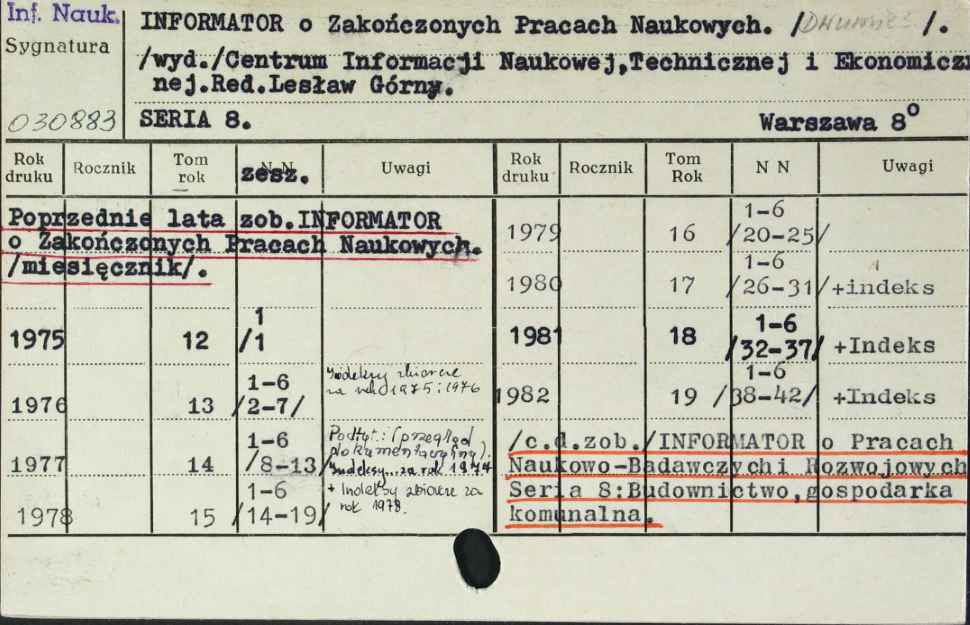 Inf. Nauk.
Sygnatura
030883
INFORMATOR o Zakończonych Pracach Naukowych. / /.
/wyd./Centrum Informacji Naukowej,Technicznej i Ekonomicz
nej.Red.Lesław Górny.
SERIA 8. Warszawa 8⁰
Rok druku Rocznik Tom rok N N zesz. Uwagi Rok druku Rocznik Tom Rok N N Uwagi
Poprzednie lata zob.INFORMATOR
o Zakończonych Pracach Naukowych.
/miesięcznik/.
1975 12 1 /1
1976 13 1-6 /2-7/ Indeksy zbiorcze na rok 1975 i 1976
1977 14 1-6 /8-13/ Podtyt.: (przegląd dokumentacyjny). Indeksy za rok 1977
1978 15 1-6 /14-19/ + Indeksy zbiorcze za rok 1978.
1979 16 1-6 /20-25/
1980 17 1-6 /26-31/ +indeks
1981 18 1-6 /32-37/ +Indeks
1982 19 1-6 /38-42/ +Indeks
/c.d.zob./INFORMATOR o Pracach
Naukowo-Badawczych i Rozwojowych
Seria 8:Budownictwo,gospodarka
komunalna.